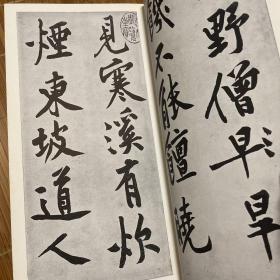 野僧早旱
饑不能饘曉
見寒溪有炊
煙東坡道人